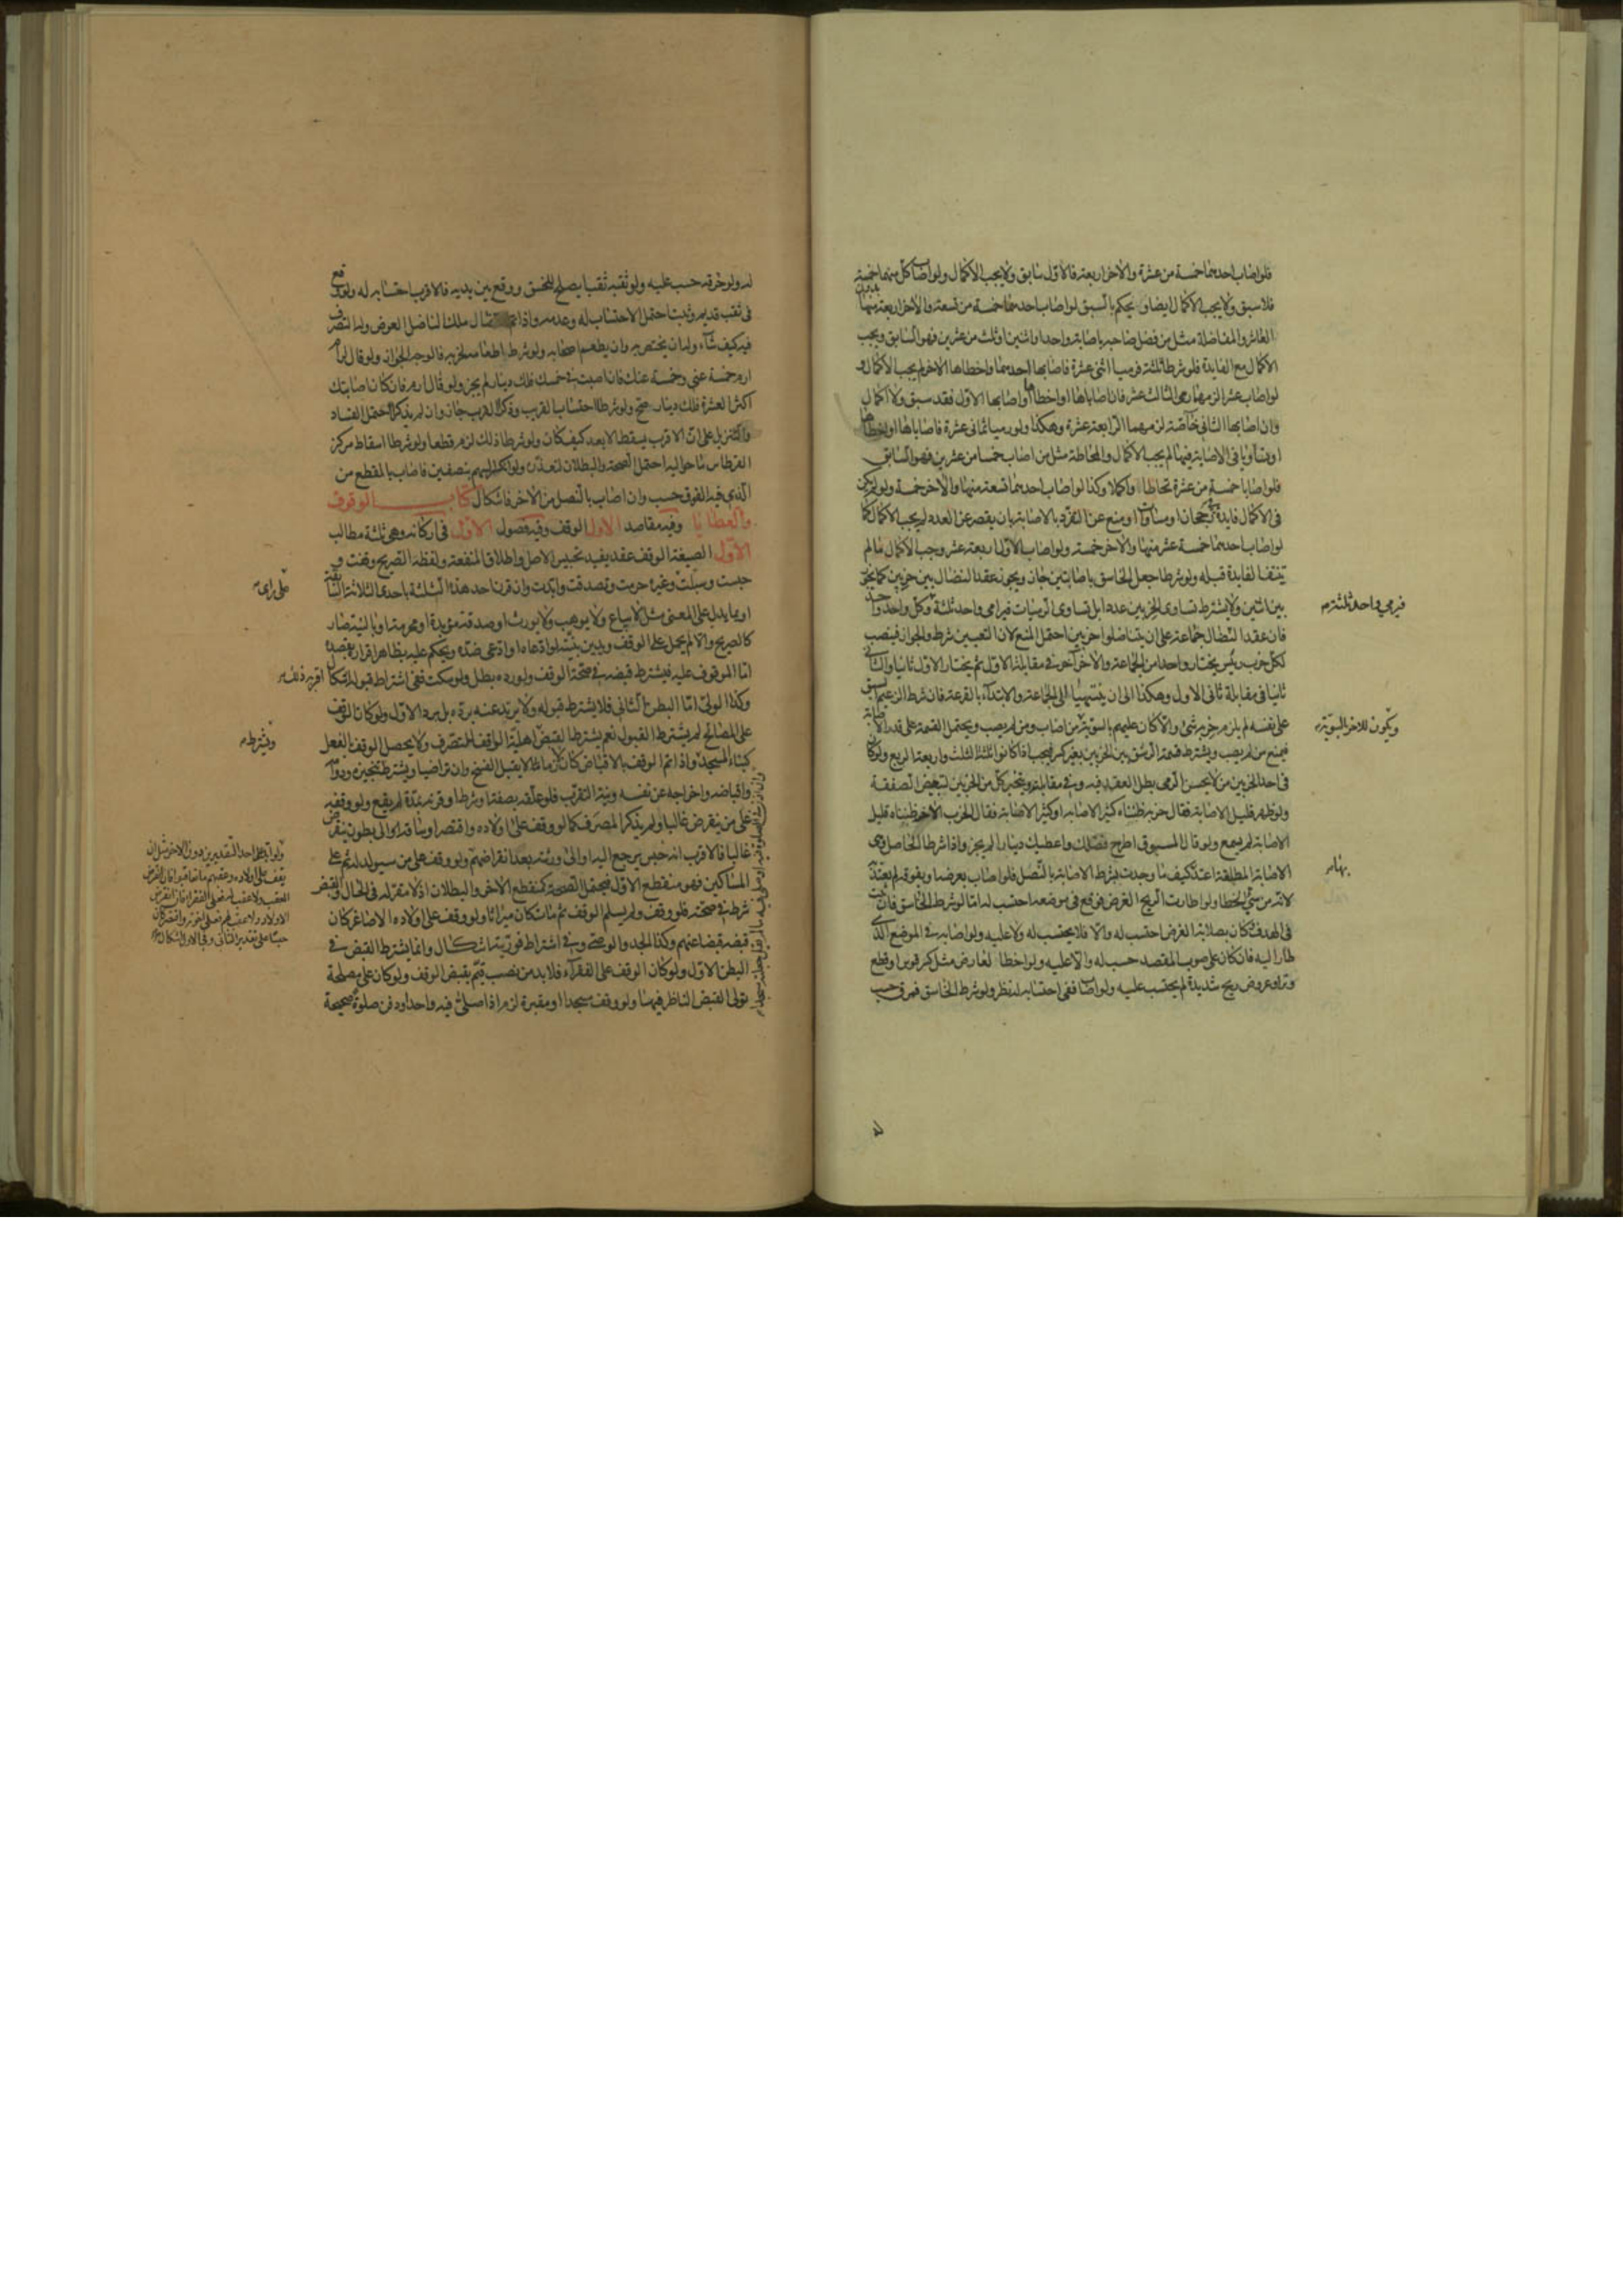 فلو اصاب احدهما خمسة من عشرة والاخر اربعة فالاول سابق ولا يجب الاكمال ولو اصاب كل منهما خمسة
فلا سبق ولا يجب الاكمال ايضا و يحكم بالسبق لو اصاب احدهما خمسة من تسعة والاخر اربعة منها
والمفاضلة مثل من فضل صاحبه باصابة واحدة او اثنين او ثلث من عشرين فهو السابق ويجب
الاكمال مع الفايدة فلو شرطا ثلثة فرميا اثنى عشرة فاصابها احدهما واخطاها الاخر لم يجب الاكمال و
لو اصاب عشرا لزمهما رمى الثالث عشر فان اصاباها او اخطاها او اصابها الاول فقد سبق ولا اكمال
وان اصابها الثانى خاصة لزمهما الرابعة عشرة وهكذا ولو رميا ثمانى عشرة فاصاباها او اخطاها
او تساويا فى الاصابة فيها لم يجب الاكمال والمحاطة مثل من اصاب خمسا من عشرين فهو السابق
فلو اصابا خمسة من عشرة تحاطا واكملا وكذا لو اصاب احدهما تسعة منها والاخر خمسة ولو لم يكن
فى الاكمال فايدة او مساواة او منع عن التفرد بالاصابة بان يقصر عن العدد لم يجب الاكمال كما
لو اصاب احدهما خمسة عشر منها والاخر خمسة ولو اصاب الاول اربعة عشر وجب الاكمال ما لم
تنتف الفايدة قبله ولو شرطا جعل الخاسق باصابتين جاز ويجوز عقد النضال بين حزبين كما يجوز
بين اثنين ولا يشترط تساوى الحزبين عددا بل تساوى الرميات فيرامى واحد ثلثة وكل واحد واحد
فيرمي واحد ثلثة
فان عقد النضال جماعة على ان يتناضلوا حزبين احتمل المنع لان التعيين شرط والجواز فينصب
لكل حزب رئيس يختار واحدا من الجماعة والاخر آخر فى مقابلته الاول ثم يختار الاول ثانيا والثانى
ثانيا فى مقابلة ثانى الاول وهكذا الى ان ينتهيا الى الجماعة والابتداء بالقرعة فان شرط الزعيم السبق
على نفسه لم يلزم حزبه شئ والا كان عليهم بالسوية من اصاب ومن لم يصب ويحتمل القسمة على قدر الاصابة
ويكون للاخر بالسوية
فيمنع من لم يصب ويشترط قسمة الرشق بين الحزبين بغير كسر فيجب اذا كانوا ثلثة الثلث واربعة الربع ولو كان
فى احد الحزبين من لا يحسن الرمى بطل العقد فيه وفى مقابله ويتخير كل من الحزبين لتبعيض الصفقة
ولو ظهر قليل الاصابة فقال حزبه ظنناه كثير الاصابة او كثير الاصابة فقال الحزب الاخر ظنناه قليل
الاصابة لم يسمع ولو قال المسبوق اطرح فضلك واعطيك دينارا لم يجز واذا شرطا الخاصل وهى
الاصابة المطلقة اعتد كيف ما وجدت بشرط الاصابة بالنصل فلو اصاب بعرضه او بفوقه لم يعتد
بها
لانه من سئ الخطا ولو اطارت الريح الغرض فوقع فى موضعه احتسب له اما لو شرط الخاسق فان ثبت
فى الهدف وكان بصلابة الغرض احتسب له والا فلا يحتسب له ولا عليه ولو اصابه فى الموضع الذى
طار اليه فان كان على صوب المقصد حسب له والا عليه ولو اخطا لعارض مثل كسر قوس او قطع
وتر او عروض ريح شديدة لم يحتسب عليه ولو اصاب ففى احتسابه له نظر ولو شرط الخاسق فمرق حسب
له ولو خرقه حسب عليه ولو ثقبه ثقبا يصلح للخسق ووقع بين يديه فالاقرب احتسابه له ولو وقع
فى ثقب قديم وثبت احتمل الاحتساب له وعدمه واذا تم النضال ملك الناضل العوض وله التصرف
فيه كيف شاء وله ان يختص به وان يطعم اصحابه ولو شرط اطعامه لحزبه فالوجه الجواز ولو قال لرام
ارم خمسة عنى وخمسة عنك فان اصبت فى خمسك فلك دينار لم يجز ولو قال ارم فان كان اصابتك
اكثر العشرة فلك دينار صح ولو شرطا احتساب القريب وذكرا القرب جاز وان لم يذكرا احتمل الفساد
والتنزيل على ان الاقرب يسقط الابعد كيف كان ولو شرطا ذلك لزم قطعا ولو شرطا اسقاط مركز
القرطاس ما حواليه احتمل الصحة والبطلان لتعذره ولو انكسر السهم بنصفين فاصاب بالمقطع من
الذى فيه الفوق حسب وان اصاب بالنصل من الاخر فاشكال كتاب الوقوف
والعطايا وفيه مقاصد الاول الوقف وفيه فصول الاول فى اركانه وهى ثلثة مطالب
الاول الصيغة الوقف عقد يفيد تحبيس الاصل واطلاق المنفعة ولفظه الصريح وقفت و
حبست وسبلت وغيره حرمت وتصدقت وابدت وان قرن احد هذه الثلثة باحدى الثلاثة السابقة
على راى
او بما يدل على المعنى مثل لا يباع ولا يوهب ولا يورث او صدقة مؤبدة او محرمة او بالنية صار
كالصريح والا لم يحمل على الوقف ويدين بنيته لو ادعاه او ادعى ضده ويحكم عليه بظاهر اقراره بقصد
اما الموقوف عليه فيشترط قبضه فى صحة الوقف ولو رده بطل ولو سكت ففى اشتراط قبوله اشكال
اقربه ذلك
وكذا الولى اما البطن الثانى فلا يشترط قبوله ولا يرتد عنه برده بل برد الاول ولو كان الوقف
على المصالح لم يشترط القبول نعم يشترط القبض اهلية الواقف للتصرف ولا يحصل الوقف بالفعل
ويشترط
كبناء المسجد واذا تم الوقف بالاقباض كان لازما لا يقبل الفسخ وان تراضيا ويشترط تنجيزه ودوامه
واقباضه واخراجه عن نفسه ونية التقرب فلو علقه بصفة او شرط او قرنه بمدة لم يقع ولو وقفه
على من ينقرض غالبا ولم يذكر المصرف كما لو وقف على اولاده واقتصر او ساقه الى بطون ينقرض
غالبا فالاقرب انه حبس يرجع اليه او الى ورثته بعد انقراضهم ولو وقف على من سيولد له ثم على
المساكين فهو منقطع الاول فيحتمل الصحة كمنقطع الاخر والبطلان اذ لا مقر له فى الحال والقبض
شرط فى صحته فلو وقف ولم يسلم الوقف ثم مات كان ميراثا ولو وقف على اولاده الاصاغر كان
قبضه قبضا عنهم وكذا الجد والوصى وفى اشتراط فوريته اشكال وانما يشترط القبض فى
البطن الاول ولو كان الوقف على الفقراء فلا بد من نصب قيم يقبض الوقف ولو كان على مصلحة
تولى القبض الناظر فيها ولو وقف مسجدا او مقبرة لزم اذا صلى فيه واحد او دفن صلوة صحيحة
ولو ابد على احد التقديرين دون الاخر مثل ان
يقف على اولاده وعقبهم ما تعاقبوا فان انقرض
العقب ولا عقب له فعلى الفقراء فان انقرض
الاولاد ولا عقب لهم فعلى اخوته واقتصر كان
حبسا على تقدير الثانى وفى الاول اشكال